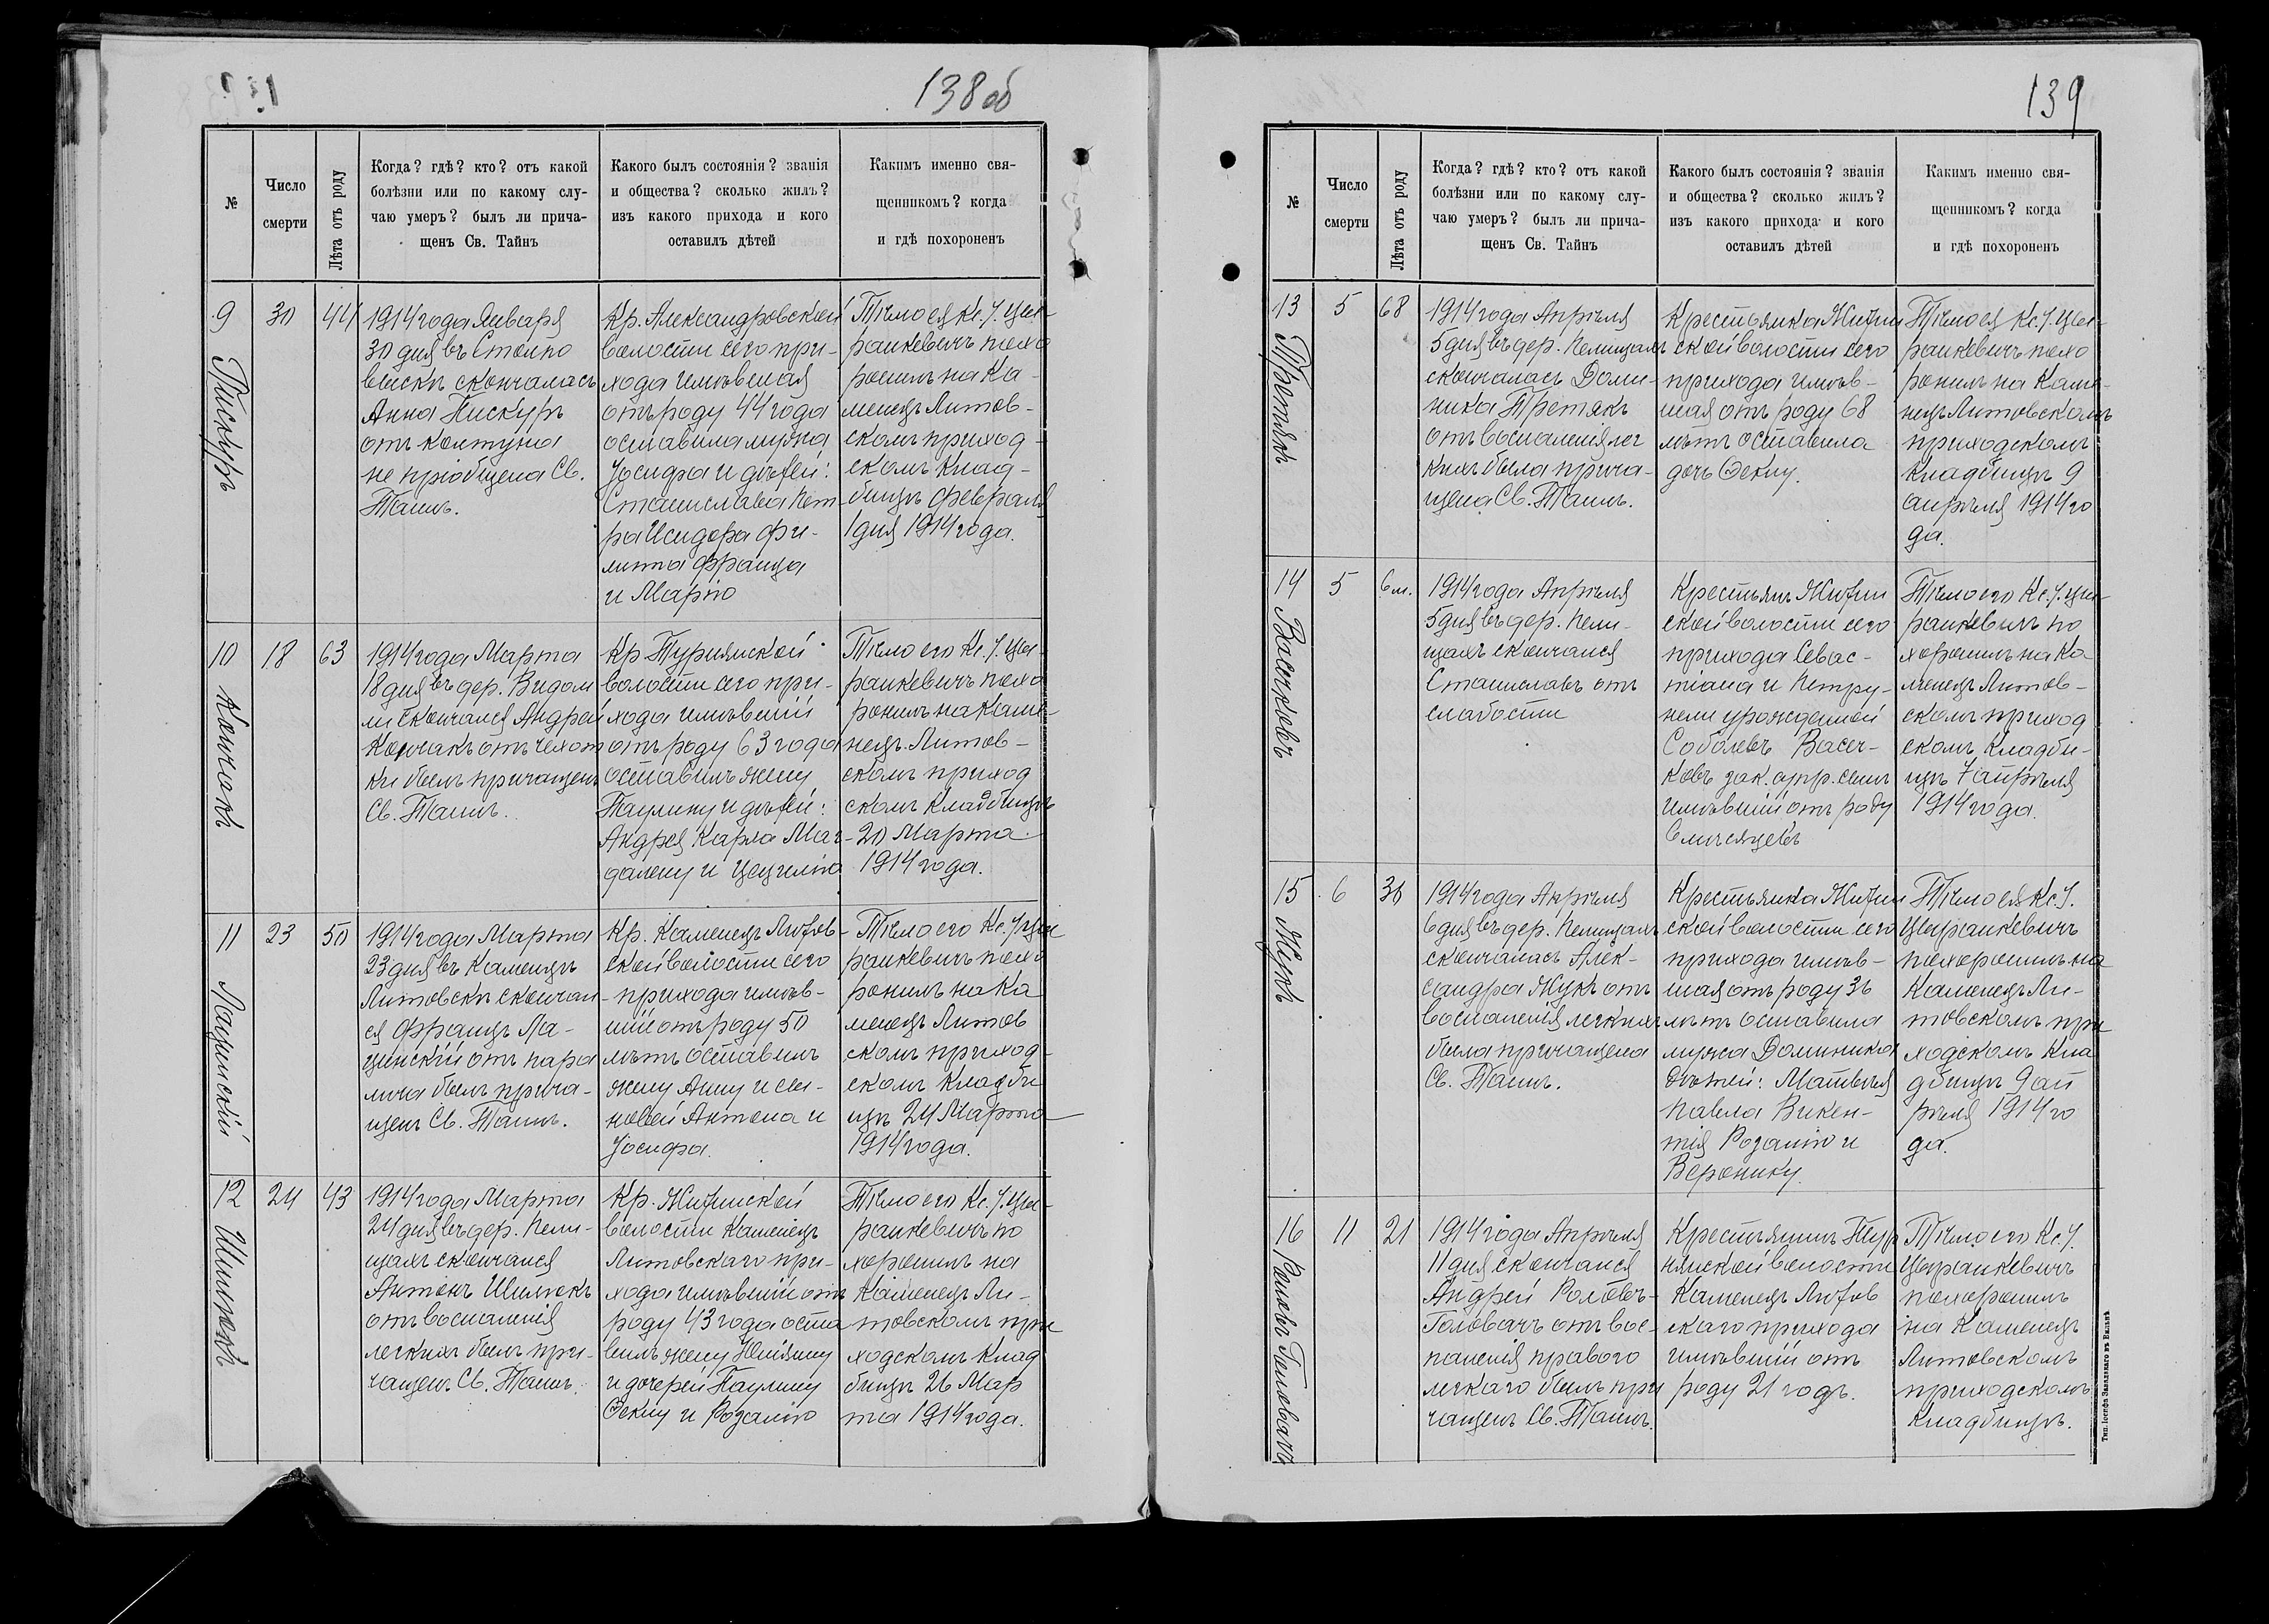 138 об
№
Число
смерти
Лѣта отъ роду
Когда? гдѣ? кто? отъ какой
болѣзни или по какому слу-
чаю умеръ? былъ ли прича-
щенъ Св. Тайнъ
Какого былъ состоянія? званія
и общества? сколько жилъ?
изъ какого прихода и кого
оставилъ дѣтей
Какимъ именно свя-
щенникомъ? когда
и гдѣ похороненъ
9
Пискуръ
30
44
1914 года Января
30 дня въ
скончалась
Анна Пискуръ
отъ колтуна
не пріобщена Св.
Таинъ.
Кр. Александровской
волости сего при-
хода имѣвшая
отъ роду 44 года
оставила мужа
Іосифа и дѣтей:
Станислава Пет-
ра Исидора
Франца
и Марію
Тѣло ея Кс. І. Цы-
ранкевичъ похо
ронилъ на Ка-
менецъ Литов-
скомъ приход-
скомъ клад-
бищѣ Февраля
1 дня 1914 года.
10
Кончакъ
18
63
1914 года Марта
18 дня въ дер. Видом
ли скончался Андрей
Кончакъ отъ чахот
ки былъ причащенъ
Св. Таинъ.
Кр. Турнянской
волости сего при-
хода имѣвшій
отъ роду 63 года
оставилъ жену
Паулину и дѣтей:
Андрея Карла Маг-
далену и Цецилію
Тѣло его Кс. І. Цы-
ранкевичъ похо
ронилъ на Каме-
нецъ-Литов-
скомъ приход
скомъ кладбищѣ
20 Марта
1914 года.
11
Лацинскій
23
50
1914 года Марта
23 дня въ Каменцѣ
Литовскѣ скончал-
ся Францъ Ла-
цинскій отъ пара
лича былъ прича-
щенъ Св. Таинъ.
Кр. Каменецъ Литов-
ской волости сего
прихода имѣв-
шій отъ роду 50
лѣтъ оставилъ
жену Анну и сы-
новей Антона и
Іосифа.
Тѣло его Кс. І. Цы
ранкевичъ похо
ронилъ на Ка
менецъ Литов
скомъ приход-
скомъ кладби
щѣ 24 Марта
1914 года.
12
Шилюкъ
24
43
1914 года Марта
24 дня въ дер. Пели-
щахъ скончался
Антонъ Шилюкъ
отъ воспаленія
легкихъ былъ при-
чащенъ Св. Таинъ.
Кр. Житинской
волости Каменецъ
Литовскаго при-
хода имѣвшій отъ
роду 43 года оста
вилъ жену Юліянну
и дочерей Паулину
Феклу и Розалію
Тѣло его Кс. І. Цы-
ранкевичъ по
хоронилъ на
Каменецъ Ли-
товскомъ при
ходскомъ клад
бищѣ 26 Мар
та 1914 года.
139
№
Число
смерти
Лѣта отъ роду
Когда? гдѣ? кто? отъ какой
болѣзни или по какому слу-
чаю умеръ? былъ ли прича-
щенъ Св. Тайнъ
Какого былъ состоянія? званія
и общества? сколько жилъ?
изъ какого прихода и кого
оставилъ дѣтей
Какимъ именно свя-
щенникомъ? когда
и гдѣ похороненъ
13
Третякъ
5
68
1914 года Апрѣля
5 дня въ дер. Пелищахъ
скончалась Доми-
ника Третякъ
отъ воспаленія лег
кихъ была прича-
щена Св. Таинъ.
Крестьянка Житин
ской волости сего
прихода имѣв-
шая отъ роду 68
лѣтъ оставила
дочь Феклу.
Тѣло ея Кс. І. Цы-
ранкевичъ похо
ронилъ на Каме-
нецъ Литовскомъ
приходскомъ
кладбищѣ 9
апрѣля 1914 го
да.
14
Васчковъ
5
6 м.
1914 года Апрѣля
5 дня въ дер. Пели-
щахъ скончался
Станиславъ отъ
слабости
Крестьянъ Житин
ской волости сего
прихода Севас-
тіана и Петру-
нели урожденной
Соболевъ Васеч-
ковъ зак. супр. сынъ
имѣвшій отъ роду
6 мѣсяцевъ
Тѣло его Кс. І. Цы-
ранкевичъ по
хоронилъ на Ка
менецъ Литов-
скомъ приход
скомъ кладби-
щѣ 7 апрѣля
1914 года.
15
Жукъ
6
36
1914 года Апрѣля
6 дня въ дер. Пелищахъ
скончалась Алек-
сандра Жукъ отъ
воспаленія легкихъ
была причащена
Св. Таинъ.
Крестьянка Житин
ской волости сего
прихода имѣв-
шая отъ роду 36
лѣтъ оставила
мужа Доминика
дѣтей: Матвѣя
Павла Викен-
тія Розалію и
Веронику.
Тѣло ея Кс. І.
Цыранкевичъ
похоронилъ на
Каменецъ Ли-
товскомъ при
ходскомъ кла
дбищѣ 9 ап
рѣля 1914 го
да.
16
Головачъ
11
21
1914 года Апрѣля
11 дня скончался
Андрей
Головачъ отъ вос-
паленія правого
легкаго былъ при
чащенъ Св. Таинъ.
Крестьянинъ Тур
нянской волости
Каменецъ Литов
скаго прихода
имѣвшій отъ
роду 21 годъ.
Тѣло его Кс. І.
Цыранкевичъ
похоронилъ
на Каменецъ
Литовскомъ
приходскомъ
кладбищѣ.
Тип. Іосифа Завадзкаго въ Вильнѣ